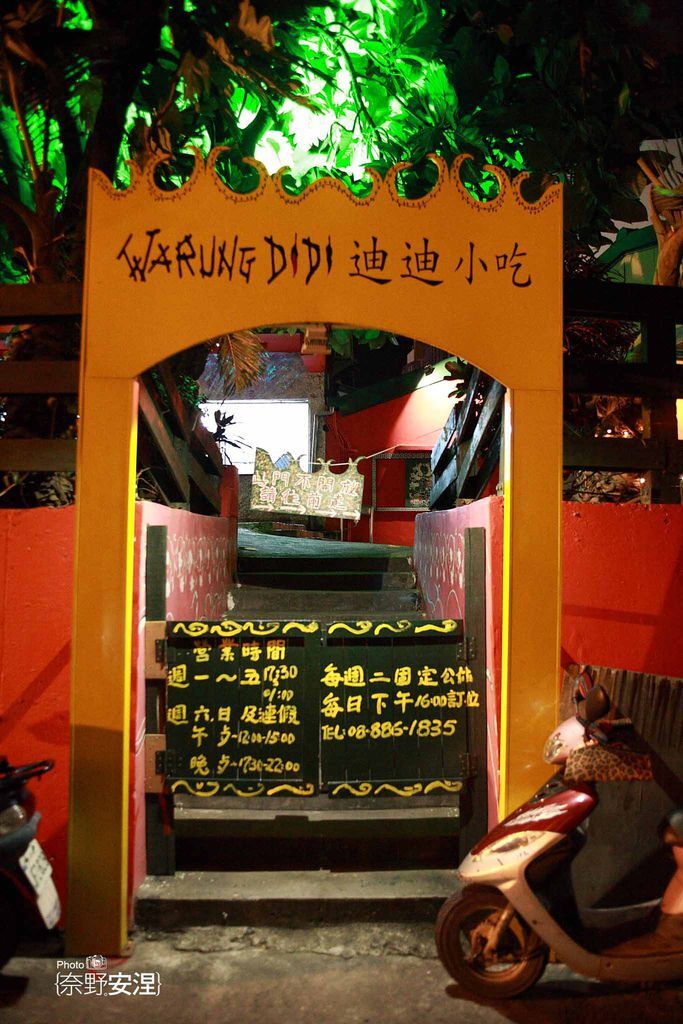 WARUNG DIDI 迪迪小吃
此門不開放
請往前走
營業時間
週一～五17:30
週六.日及連假
午歺-12:00-15:00
晚歺-17:30-22:00
每週二固定公休
每日下午16:00訂位
TEL:08-886-1835
Photo
{奈野。安涅}